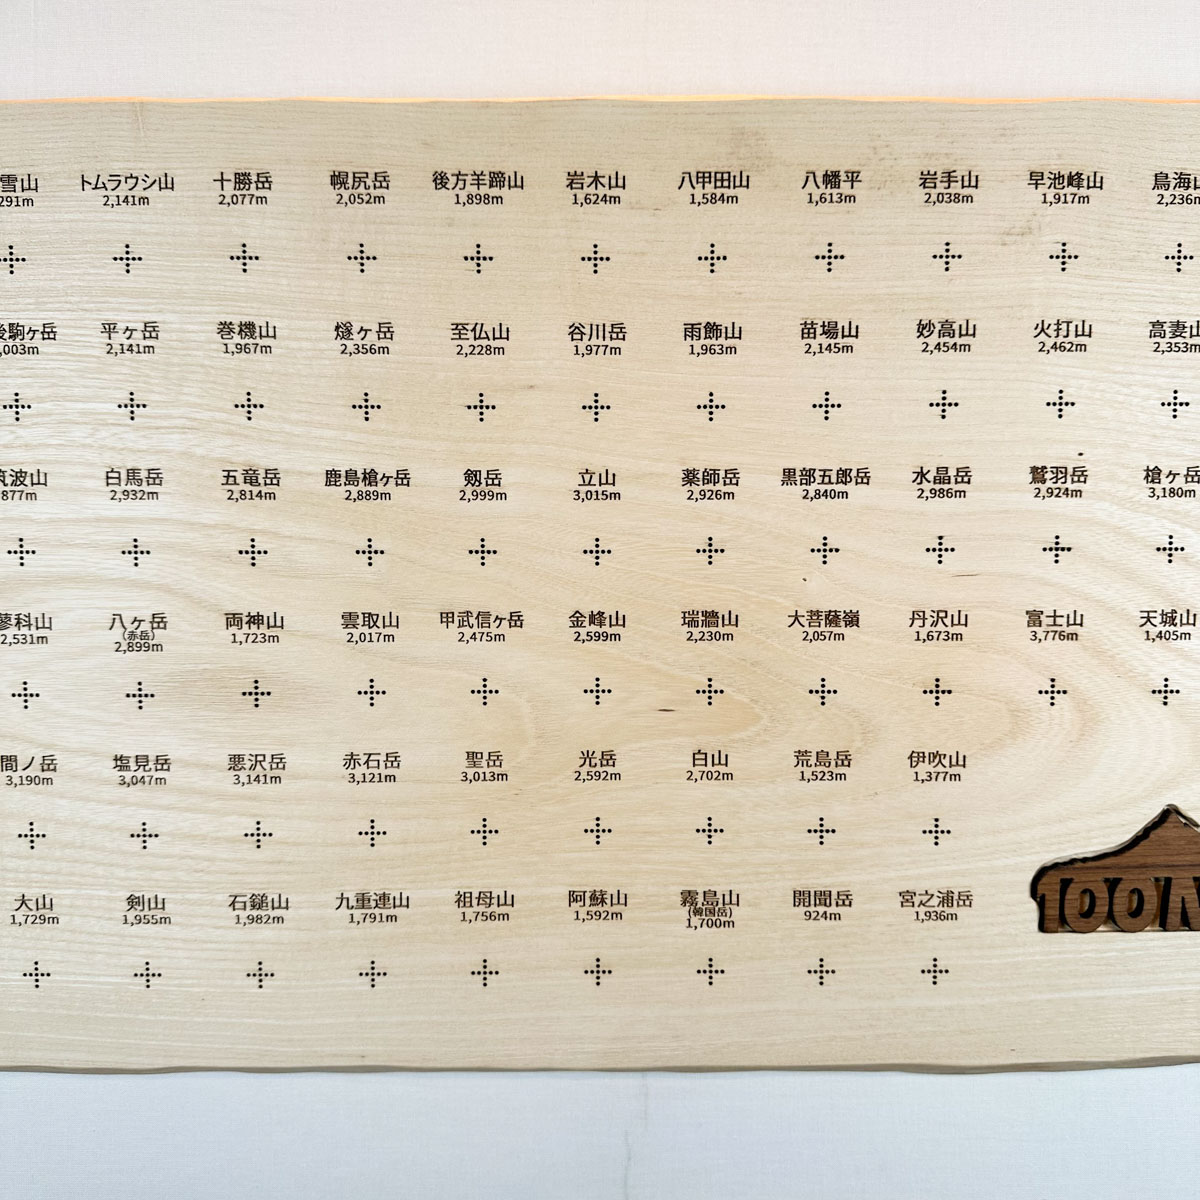 雪山 トムラウシ山 十勝岳 幌尻岳 後方羊蹄山 岩木山 八甲田山 八幡平 岩手山 早池峰山 鳥海山
291m 2,141m 2,077m 2,052m 1,898m 1,624m 1,584m 1,613m 2,038m 1,917m 2,236m
後駒ヶ岳 平ヶ岳 巻機山 燧ヶ岳 至仏山 谷川岳 雨飾山 苗場山 妙高山 火打山 高妻山
,003m 2,141m 1,967m 2,356m 2,228m 1,977m 1,963m 2,145m 2,454m 2,462m 2,353m
筑波山 白馬岳 五竜岳 鹿島槍ヶ岳 剱岳 立山 薬師岳 黒部五郎岳 水晶岳 鷲羽岳 槍ヶ岳
877m 2,932m 2,814m 2,889m 2,999m 3,015m 2,926m 2,840m 2,986m 2,924m 3,180m
蓼科山 八ヶ岳 両神山 雲取山 甲武信ヶ岳 金峰山 瑞牆山 大菩薩嶺 丹沢山 富士山 天城山
(赤岳)
2,531m 2,899m 1,723m 2,017m 2,475m 2,599m 2,230m 2,057m 1,673m 3,776m 1,405m
間ノ岳 塩見岳 悪沢岳 赤石岳 聖岳 光岳 白山 荒島岳 伊吹山
3,190m 3,047m 3,141m 3,121m 3,013m 2,592m 2,702m 1,523m 1,377m
大山 剣山 石鎚山 九重連山 祖母山 阿蘇山 霧島山 開聞岳 宮之浦岳
(韓国岳)
1,729m 1,955m 1,982m 1,791m 1,756m 1,592m 1,700m 924m 1,936m
100M